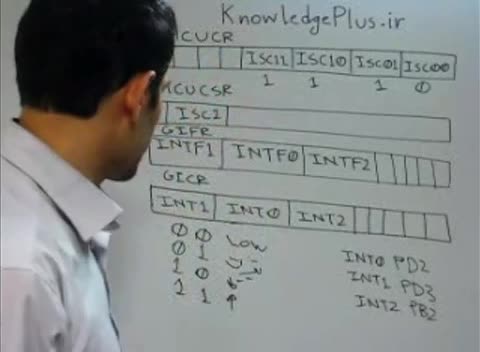 KnowledgePlus.ir
CUCR
ISC11 ISC10 ISC01 ISC00
1 1 1 0
CUCSR
ISC2
GIFR
INTF1 INTF0 INTF2
GICR
INT1 INT0 INT2
0 0 Low
0 1
1 0
1 1 ↑
INT0 PD2
INT1 PD3
INT2 PB2